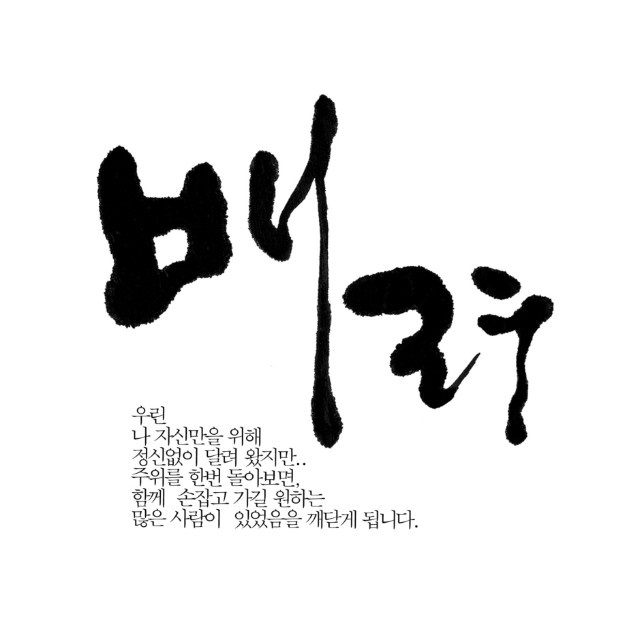 배려
우린
나 자신만을 위해
정신없이 달려 왔지만..
주위를 한번 돌아보면,
함께 손잡고 가길 원하는
많은 사람이 있었음을 깨닫게 됩니다.